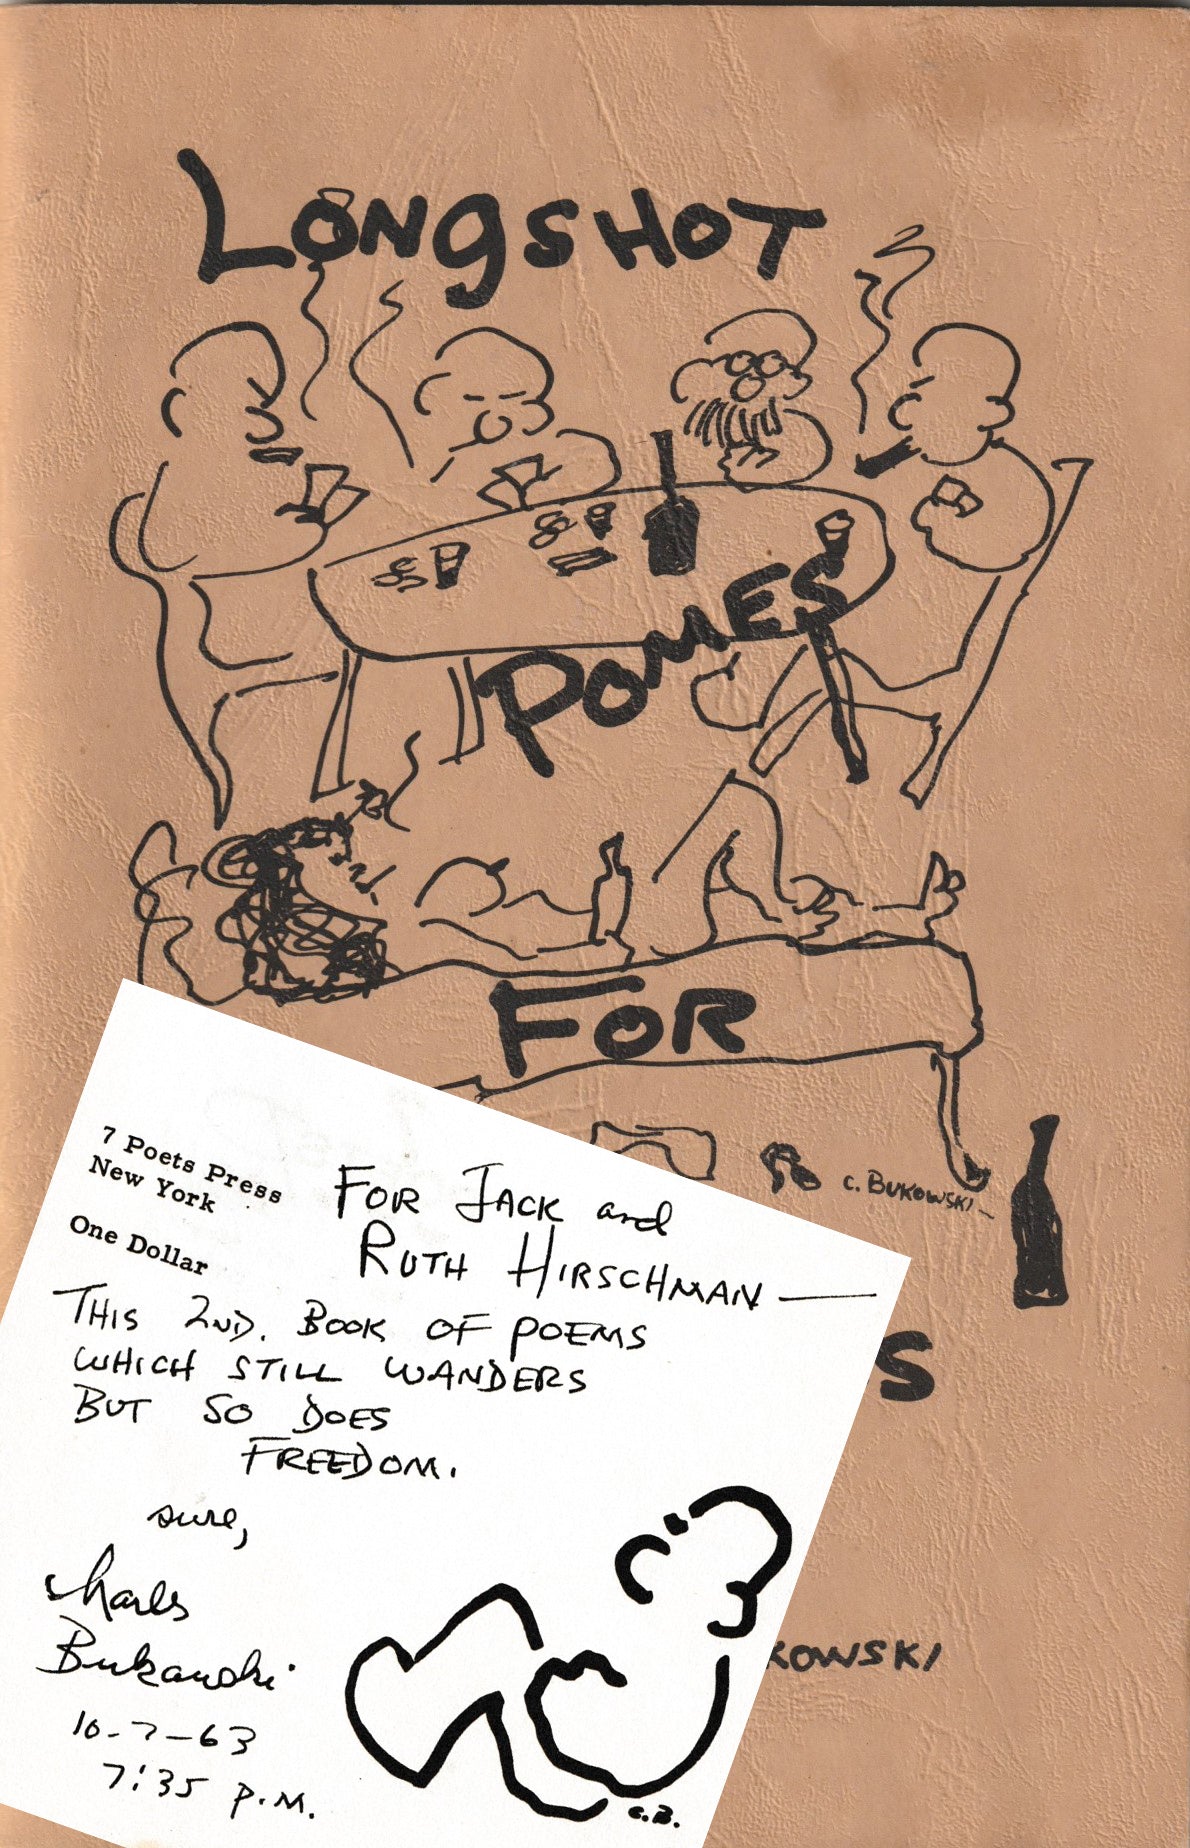 LONGSHOT
POMES
FOR
C. BUKOWSKI
S
KOWSKI
7 Poets Press
New York
One Dollar
FOR JACK and
RUTH HIRSCHMAN —
THIS 2ND. BOOK OF POEMS
WHICH STILL WANDERS
BUT SO DOES
FREEDOM.
sure,
Charles
Bukowski
10-7-63
7:35 P.M.
C.B.